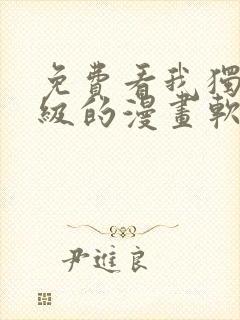 免費看我獨
級的漫畫軟
尹進良